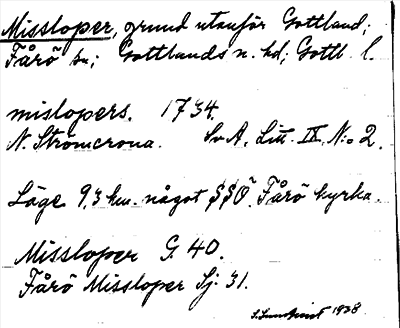 Missloper, grund utanför Gottland;
Fårö sn; Gottlands n. hd; Gottl. l.
mislopers. 1734.
N. Strömcrona. Sv A. Litt. IX, N:o 2.
Läge 9,3 km. något SSÖ. Fårö kyrka.
Missloper G. 40.
Fårö Missloper Sj: 31.
S. Lundqvist 1928